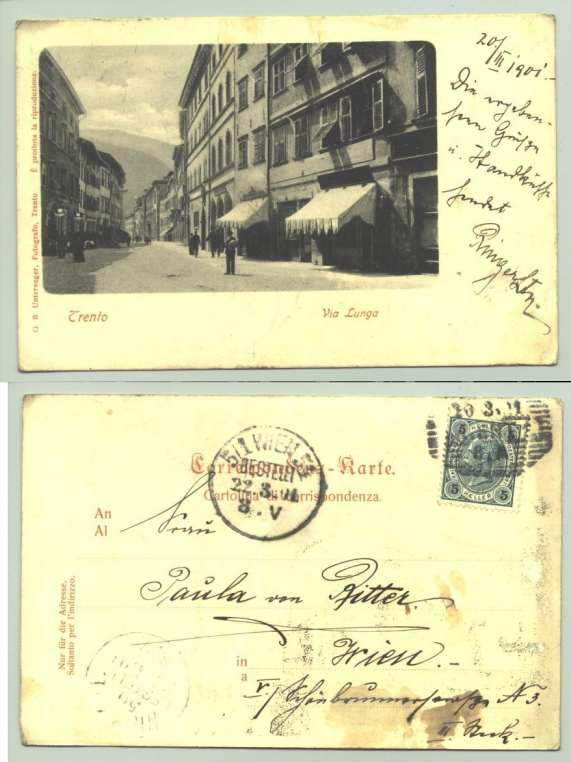 20/III 1901.-
Die ergeben-
sten Grüße
u. Handküsse
sendet
G B Unterveger, Fotografo, Trento È proibita la riproduzione.
Trento
Via Lunga
5/1 WIEN 51
BESTELLT
22.3.01
8.V
20 3.01
Correspondenz-Karte.
Cartolina di corrispondenza.
5 5
HELLER
An
Al
Frau
Paula von Ritter
Nur für die Adresse.
Soltanto per l'indirizzo.
in
a
Wien.-
V/ Schönbrunnerstraße N 3.
II. Stock.-